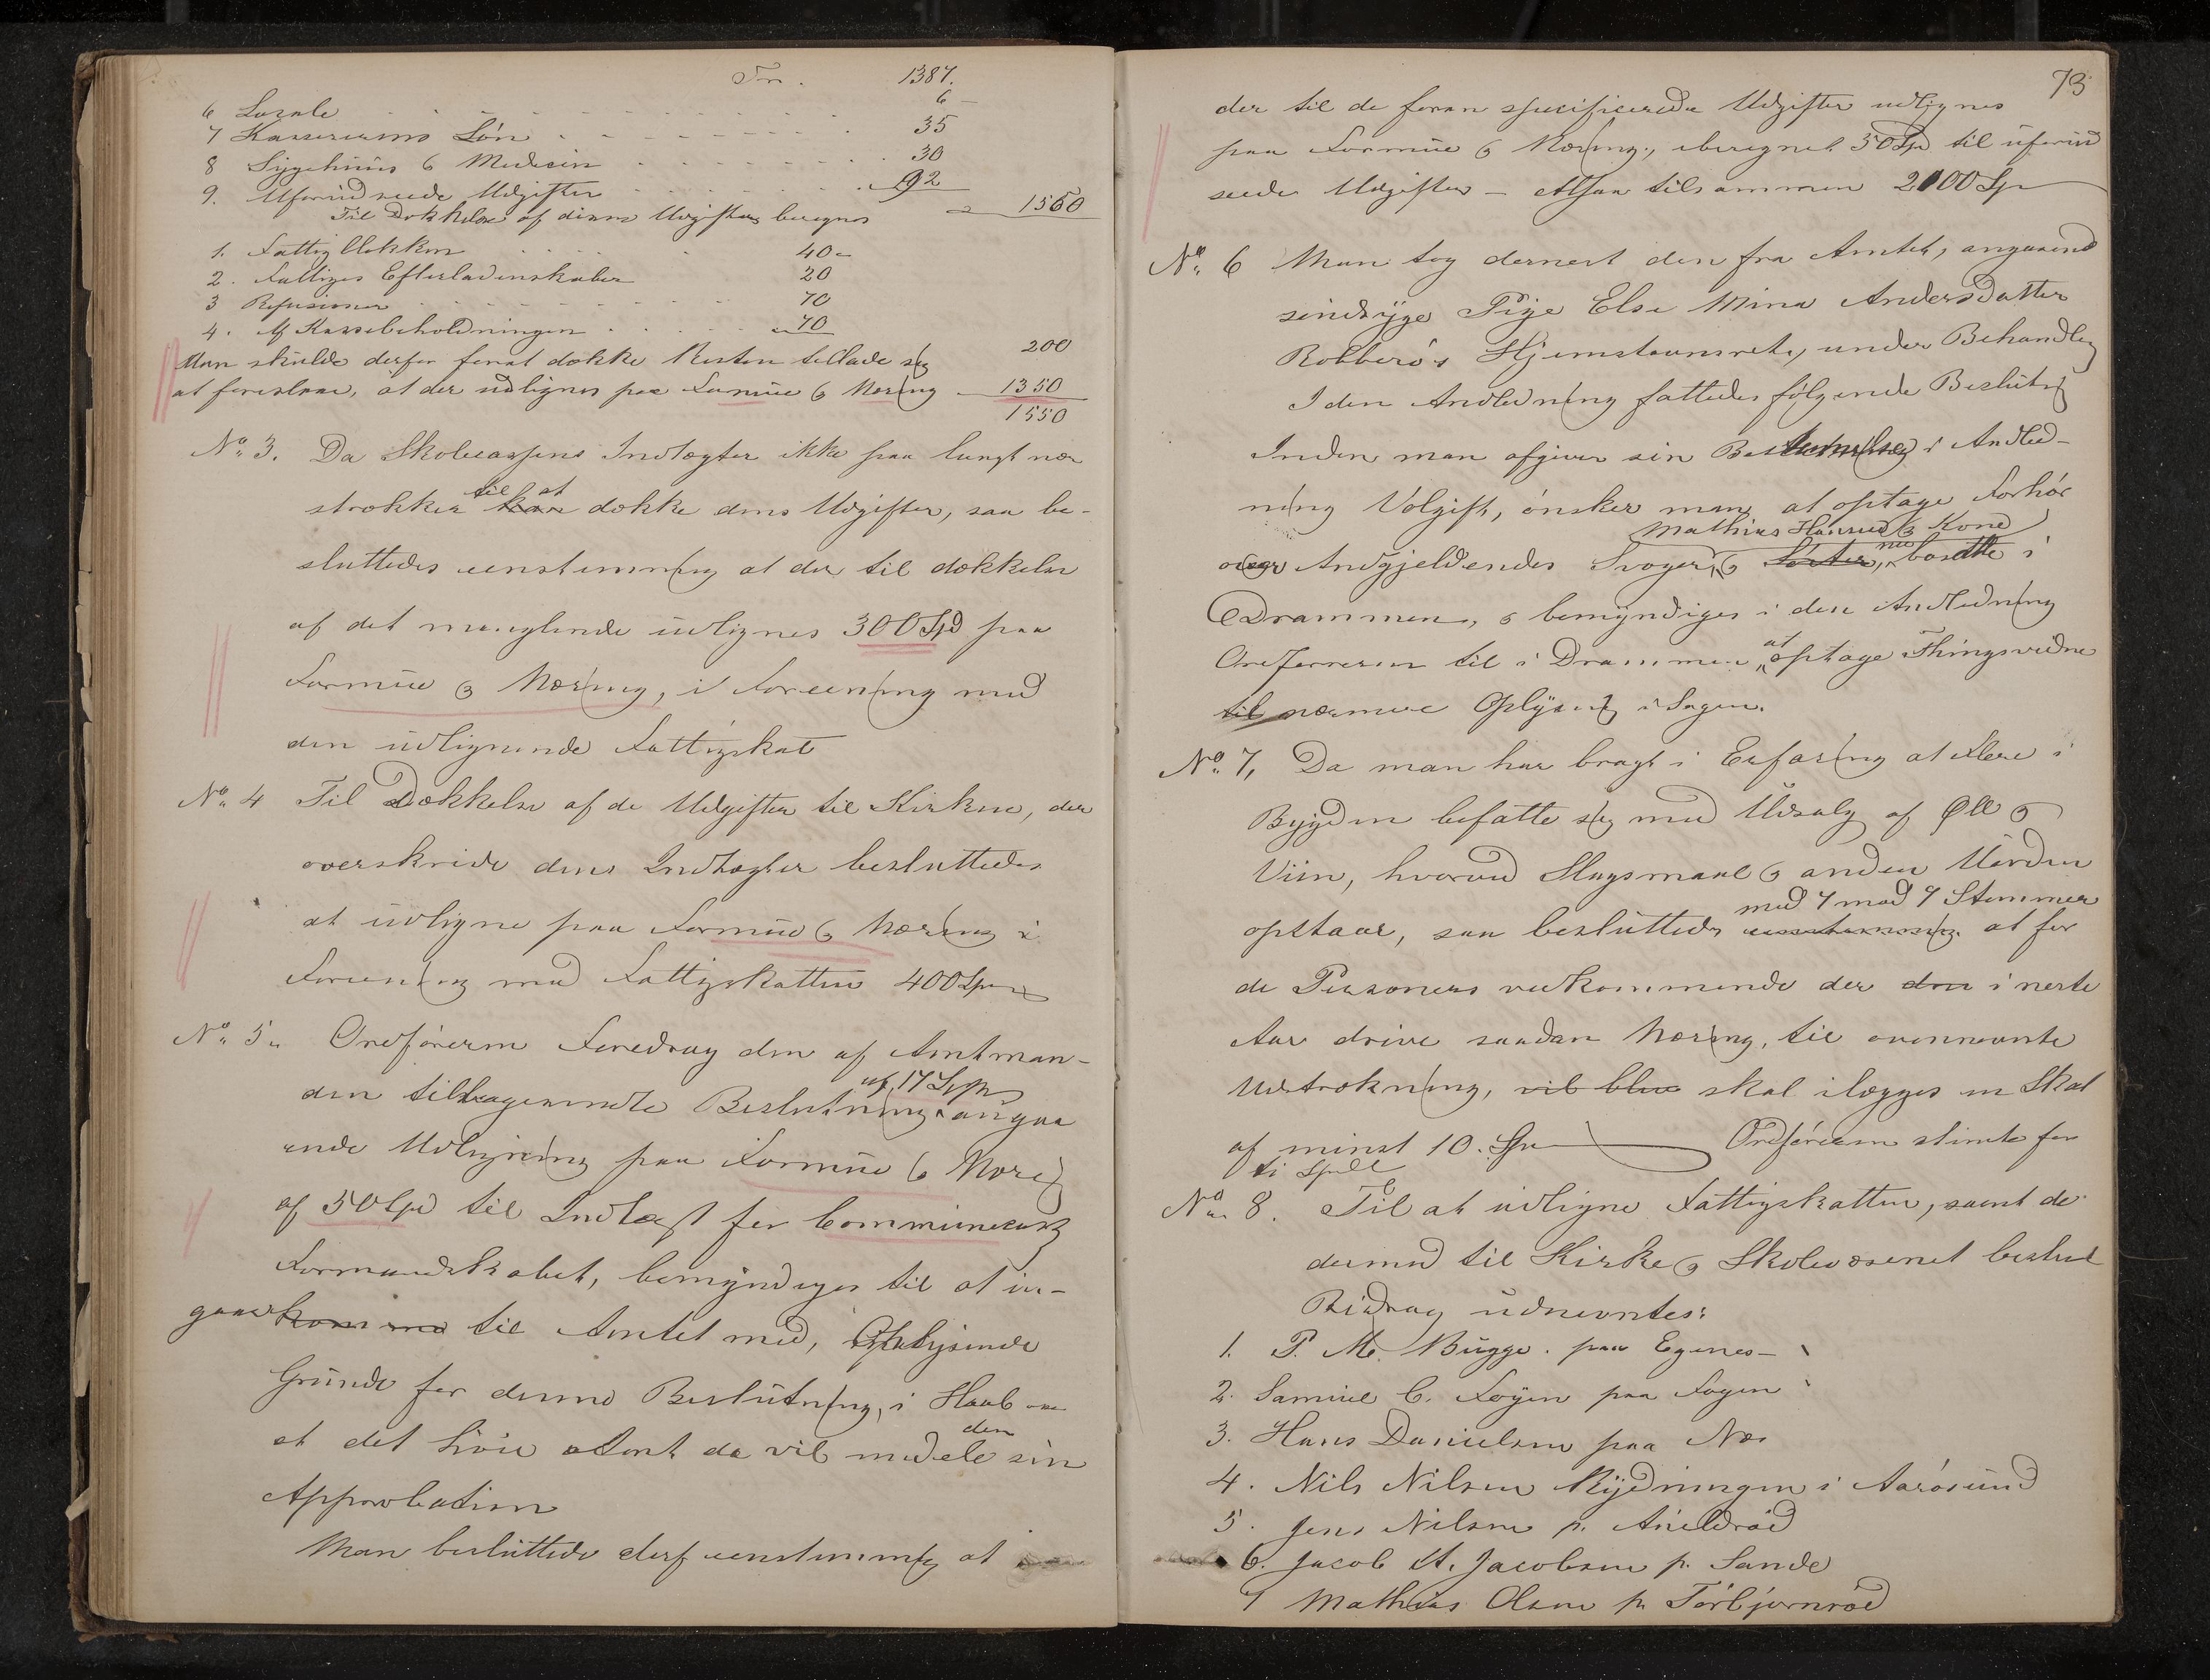 Tr. 1387.
6 Locale 6 -
7 Kassererens Løn 35
8 Sygehuus & Medicin 30
9. Uforudseede Udgifter 92
Til Dækkelse af disse Udgifter beregnes 1550
1. Fattigblokken 40 -
2. Fattiges Efterladenskaber 20
3 Refusioner 70
4. Af Kassebeholdningen 70
200
Man skulde derfor forat dække Resten tillade sig
at foreslaae, at der udlignes paa Formue & Næring 1350
1550
No. 3. Da Skolecassens Indtægter ikke paa langt nær
til at
strækker dække dens Udgifter, saa be-
sluttedes eenstemmig at der til dækkelse
af det manglende udlignes 300 Spd paa
Formue & Næring, i Foreening med
den udlignende Fattigskat
No. 4 Til Dækkelse af de Udgifter til Kirken, der
overskride dens Indtægter besluttedes
at udligne paa Formue & Næring i
Foreening med Fattigskatten 400 Spd
No. 5. Ordføreren Foredrag den af Amtman-
af 17 Sept
den tilbagesendte Beslutning angaa
ende Udligning paa Formue & Næring
af 50 Spd til Indtægt for Communecassen
Formandskabet, bemyndiges til at in-
gaae til Amtet med, Oplysende
Grunde for denne Beslutning, i Haab om
den
at det høie Amt da vil meddele sin
Approbation
Man besluttede derf eenstemmig at
73
der til de foran specificerede Udgifter udlignes
paa Formue & Næring, iberegnet 50 Spd til uforud
seede Udgifter - Altsaa tilsammen 2100 Sp
No. 6 Man tog dernest den fra Amtet, angaaend
sindsyge Pige Else Mina Andersdatter
Robberø's Hjemstavnsret, under Behandlg
I den Anledning fattedes følgende Beslutng
Inden man afgiver sin Bestemmelse i Anled-
ning Volgift, ønsker man at optage Forhør
Mathias Hansen & Kone
over Angjeldendes Svoger, & Søster, nu bosatte i
Drammen, & bemyndiges i den Anledning
at
Ordføreren til i Drammen optage Thingsvidne
til nærmere Oplysng i Sagen.
No. 7, Da man har bragt i Erfaring at Flere i
Bygden befatte sig med Udsalg af Øll &
Viin, hvorved Slagsmaal & anden Uorden
med 7 mod 7 Stemmer
opstaar, saa besluttedes eenstemmig at for
de Personers vedkommende der den i neste
Aar drive saadan Næring, til ovennevnte
Udstrækning, vil blive skal ilægges en Skat
af minst 10. Spd Ordføreren stimte for
ti Spdl
No. 8. Til at udligne Fattigskatten, samt de
dermed til Kirke & Skolevæsenet beslut
Bidrag udnevntes:
1. P. M. Bugge. paa Egenes -
2. Samuel C. Foyen paa Foyen
3. Hans Danielsen paa Nes
4. Nils Nilsen Rydningen i Aarøsund
5. Jens Nilsen p.
6. Jacob A. Jacobsen p. Sande
7 Mathias Olsen p. Torbjørnrød